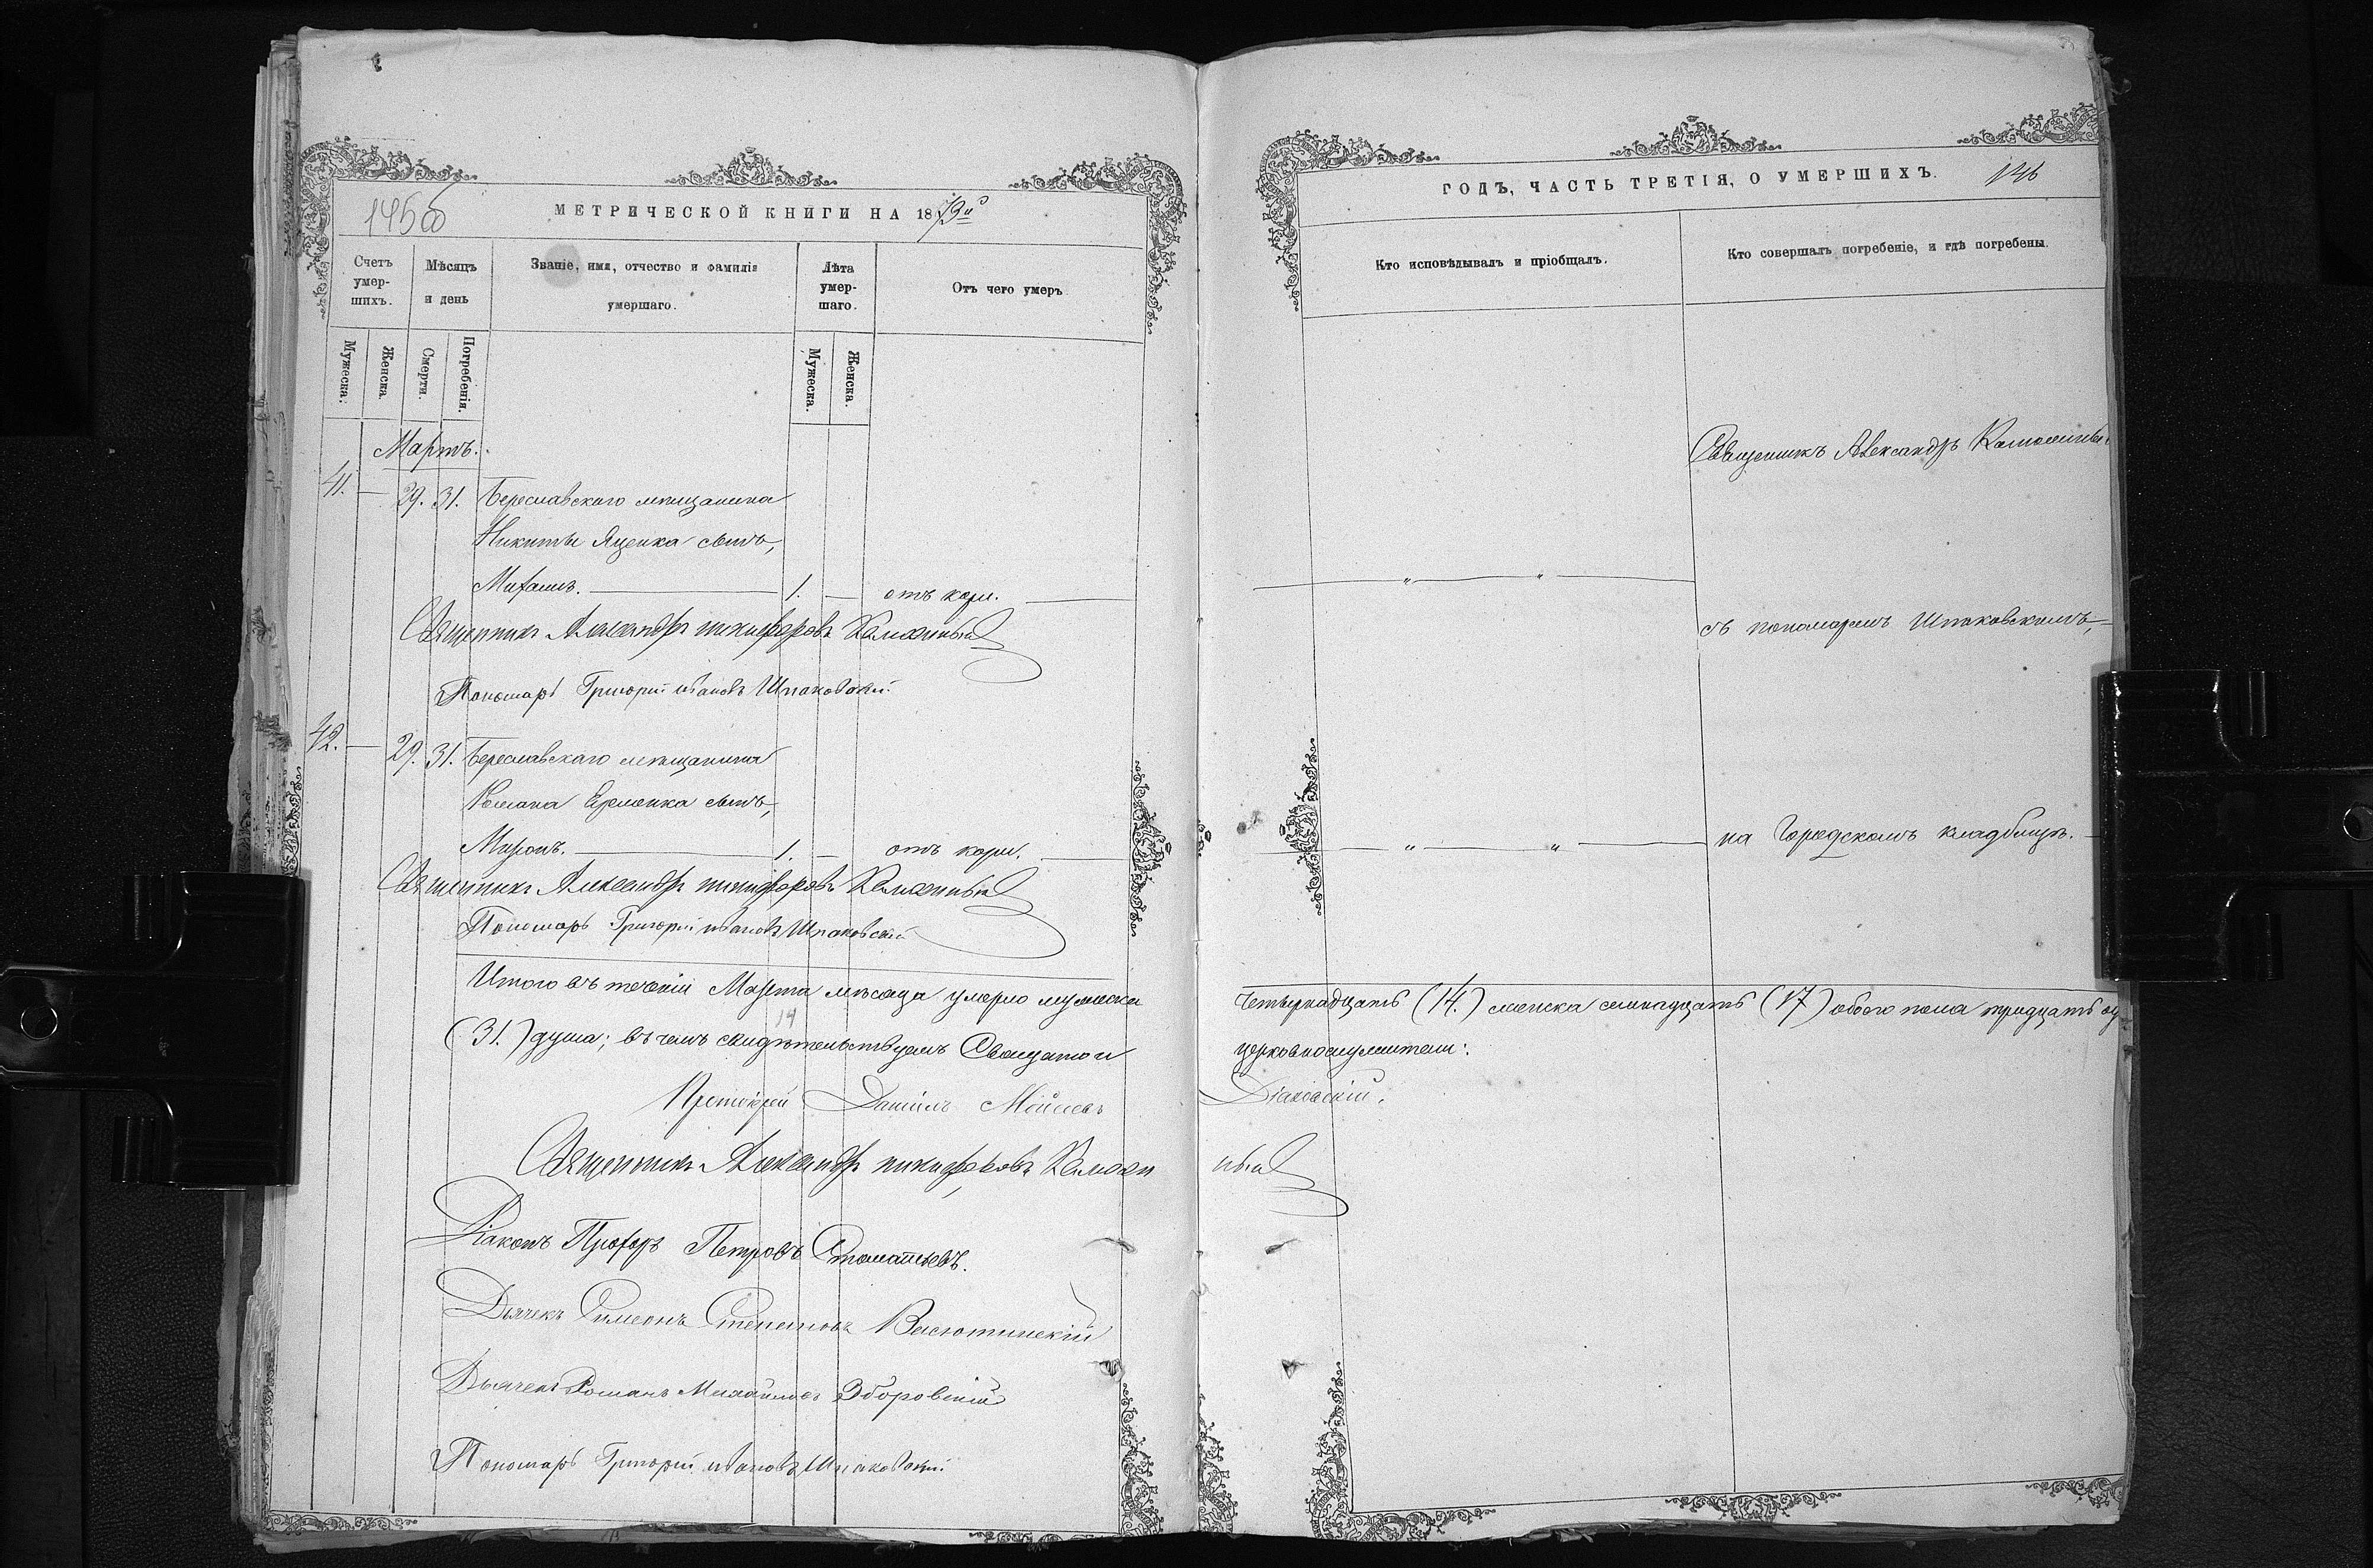 145об
МЕТРИЧЕСКОЙ КНИГИ НА 1879й
Счетъ умер-шихъ.
Мѣсяцъ и день
Званіе, имя, отчество и фамилія умершаго.
Лѣта умер-шаго.
Отъ чего умеръ
Мужеска.
Женска.
Смерти.
Погребенія.
Мужеска.
Женска.
Мартъ.
41. — 29. 31. Береславскаго мѣщанина
Никиты Яценка сынъ,
Михаилъ. — 1. — отъ кори. —
Священникъ Александръ никифоровъ
Пономарь Григорій ивановъ Шпаковскій
42. — 29. 31. Береславскаго мѣщанина
Романа Ермонка сынъ,
Миронъ. — 1. — отъ кори. —
Священникъ Александръ никифоровъ
Пономарь Григорій ивановъ Шпаковскій
Итого въ теченіи Марта мѣсяца умерло мужеска
(31.) душа; въ чемъ свидѣтельствуемъ Священно и
14
Протоіерей Даніилъ Моисеевъ
Священникъ Александръ никифоровъ
Діаконъ Прохоръ Петровъ Стоматьевъ.
Дьячекъ Симеонъ Степановъ Васютинскій
Дьячекъ Романъ Михайловъ Зборовскій
Пономарь Григорій ивановъ Шпаковскій
ГОДЪ, ЧАСТЬ ТРЕТІЯ, О УМЕРШИХЪ. 146
Кто исповѣдывалъ и пріобщалъ.
Кто совершалъ погребеніе, и гдѣ погребены.
Священникъ Александръ
съ пономаремъ Шпаковскимъ,
на Городскомъ кладбищѣ.
четырнадцать (14.) женска семнадцать (17) обоего пола тридцать од
церковнослужители:
Діаковскій.